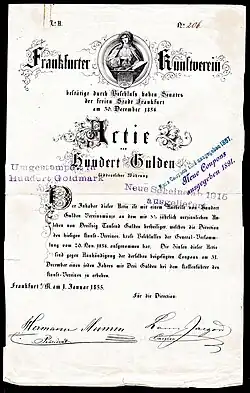 Lit. H.
No. 206
Frankfurter Kunstverein
bestätigt durch Beschluss hohen Senates
der freien Stadt Frankfurt
am 30. December 1834
Actie
von
Hundert Gulden
Süddeutscher Währung
Umgestempelt in
Hundert Goldmark
ausgegeben 1881.
Neue Coupons
ausgegeben 1891.
Neue Scheine 1916
ausgegeben
Der Inhaber dieser Actie ist mit einem Antheile von Hundert
Gulden Vereinsmünze an dem mit 3% jährlich verzinslichen An-
lehen von Dreissig Tausend Gulden betheiligt, welches die Direction
des hiesigen Kunst-Vereines, kraft Beschlusses der General-Versamm-
lung vom 20. 1854. aufgenommen hat. Die Zinsen dieser Actie
sind gegen Aushändigung der derselben beigefügten Coupons am 31.
December eines jeden Jahres mit Drei Gulden bei dem Kassenführer des
Kunst-Vereines zu erheben.
Frankfurt a/M. am 1. Januar 1855.
Für die Direction
Hermann Mumm
Präsident
Cassier